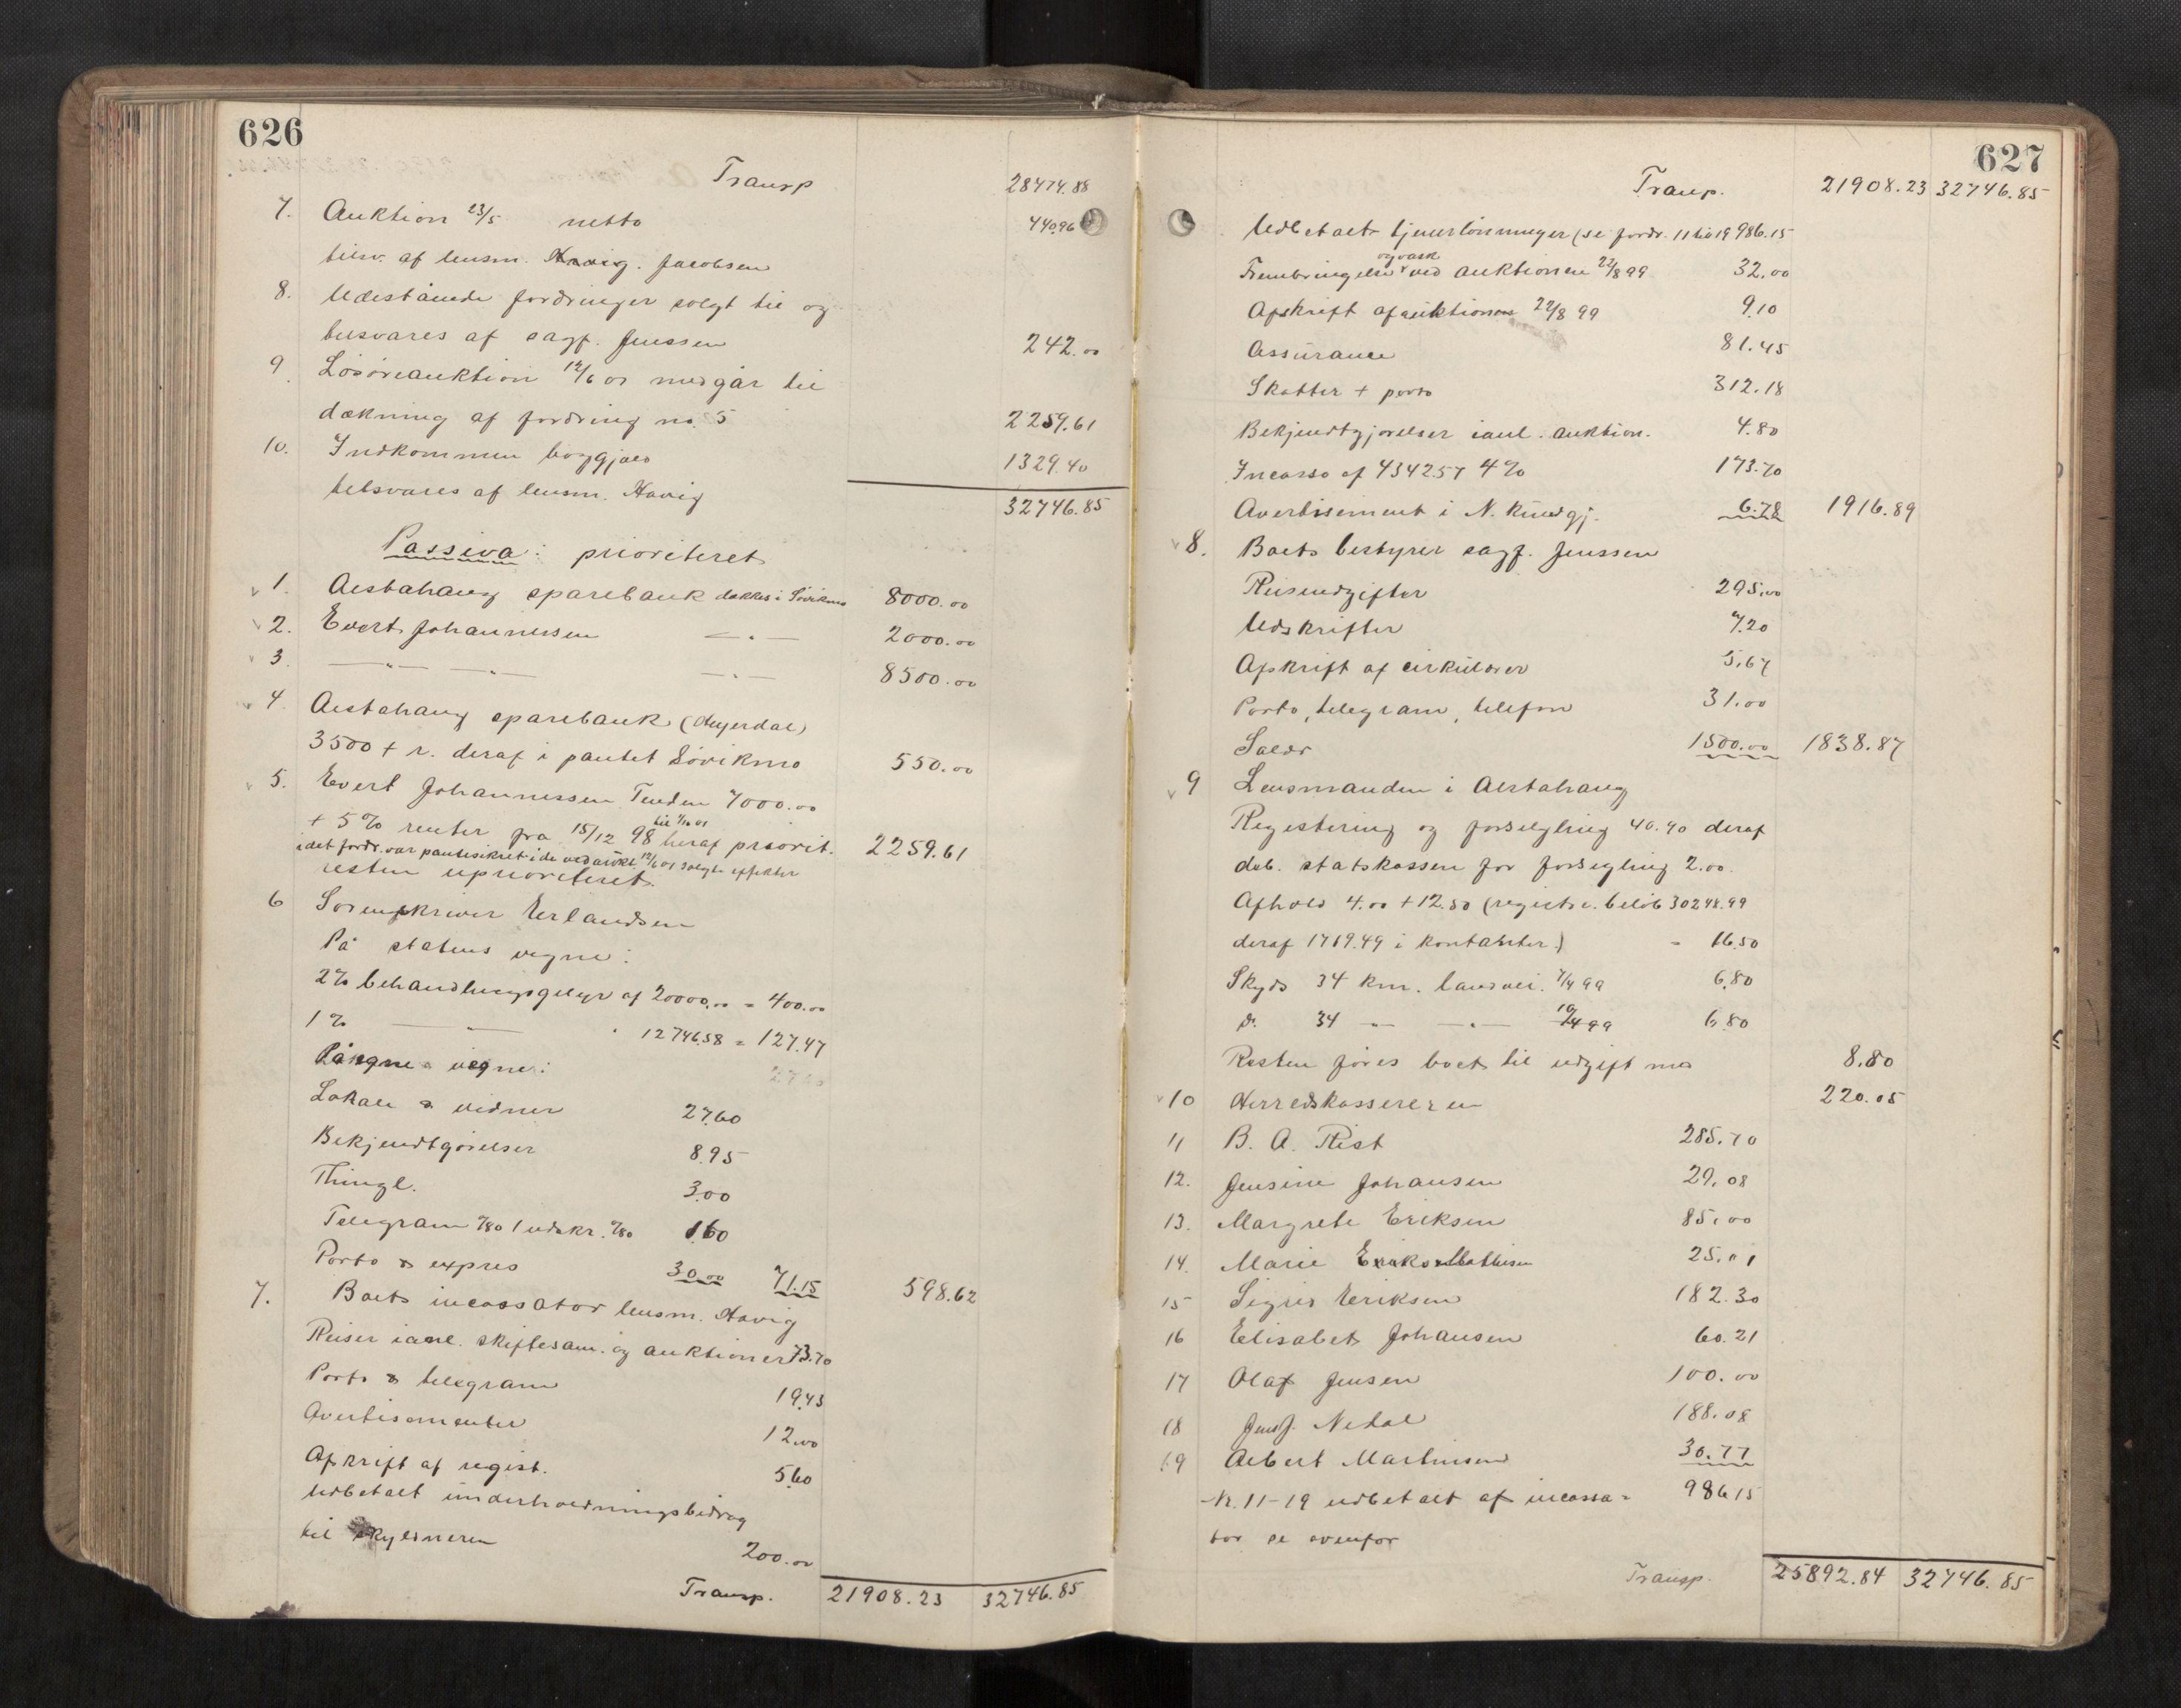 626
Transp 28474.88
7. Auktion 23/5 netto 440.96
tilsv. af lensm. Jacobsen
8. Udestående fordringer solgt til og
tilsvares af sagf. Jenssen 242.00
9. Løsøreauktion 12/6 01 medgår til
dækning af fordring no. 5 2259.61
10. Indkommen boggjæld 1329.40
tilsvares af lensm. Havig
32746.85
Passiva: prioriteret
1. Alstahaug sparebank dækkes i Søvikmo 8000.00
2. Evert Johannessen —"— 2000.00
3. —"— —"— —"— 8500.00
4. Alstahaug sparebank (Meyerdal)
3500 + r. deraf i pantet Søvikmo 550.00
5. Evert Johannessen Tenden 7000.00
+ 5% renter fra 15/12 98 til 1/10 01 heraf priorit. 2259.61
idet fordr. var pantesikret i de ved aukt. 12/6 01 solgte effekter
resten uprioriteret.
6 Sorenskriver Erlandsen
På statens vegne:
2% behandlingsgebyr af 20000.00 = 400.00
1% —"— " 12746.58 = 127.47
På egne vegne:
Lokale & vidner 27.60
Bekjendtgørelser 8.95
Thingl. 3.00
Telegram 80 1 udskr. 80 1.60
Porto & expres 30.00 71.15 598.62
7. Boets incassator lensm. Havig
Reiser i anl. skiftesam. og auktioner 73.70
Porto & telegram 19.43
Avertisementer 12.00
Afskrift af regist. 5.60
Udbetalt underholdningsbidrag
til skyldneren 200.00
Transp. 21908.23 32746.85
627
Transp. 21908.23 32746.85
Udbetalt tjenerlønninger (se fordr. 11 til 19 986.15
Frembringelse og vask ved auktionen 22/8 99 32.00
Afskrift af auktionen 22/8 99 9.10
Assurance 81.45
Skatter + porto 312.18
Bekjendtgjørelser i anl. auktion. 4.80
Incasso af 4342.57 4% 173.70
Avertisement i N. Kundgj. 6.78 1916.89
8. Boets bestyrer sagf. Jenssen
Reiseudgifter 295.00
Udskrifter 7.20
Afskrift af cirkulærer 5.67
Porto, telegram, telefon 31.00
Salær 1500.00 1838.87
9 Lensmanden i Alstahaug
Registering og forseigling 40.40 deraf
deb. statskassen for forsegling 2.00.
Afhold 4.00 + 12.50 (registr. beløb 30248.99
deraf 1769.49 i kontanter.) = 16.50
Skyds 34 km. landvei 7/4 99 6.80
do. 34 —"— —"— 10/4 99 6.80
Resten føres boet til udgift med 8.80
10 Herredskassereren 220.05
11 B. A. Rist 285.70
12. Jensine Johansen 29.08
13. Margrete Eriksen 85.00
14. Marie Mathisen 25.01
15 Sigrid Eriksen 182.30
16 Elisabet Johansen 60.21
17 Olaf Jensen 100.00
18 Jens J. Nedal 188.08
19 Albert Martinsen 30.77
Nr. 11-19 udbetalt af incassa= 986.15
tor se ovenfor
Transp. 25892.84 32746.85